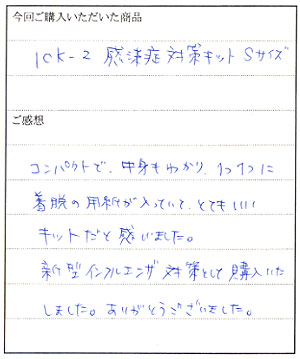 今回ご購入いただいた商品
ICK-2 感染症対策キットSサイズ
ご感想
コンパクトで、中身もわかり、1つ1つに
着脱の用紙が入っていて、とてもいい
キットだと感いました。
新型インフルエンザ対策として購入いた
しました。ありがとうございました。